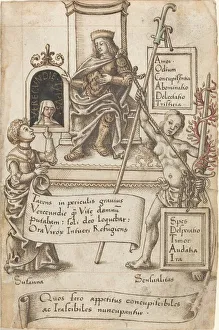 Amor
Odium
Concupiscentia
Abominatio
Delectatio
Tristicia
Parens in periculis gravius
Verecundie q Vite damnū
Putabam: sol. deo loquebar:
Ora Viros Intueri Refugiens
Spes
Desperatio
Timor
Audatia
Ira
Susanna
Sensualitas
Quos siro appetitus concupiscibiles
ac Irascibiles nuncupentur